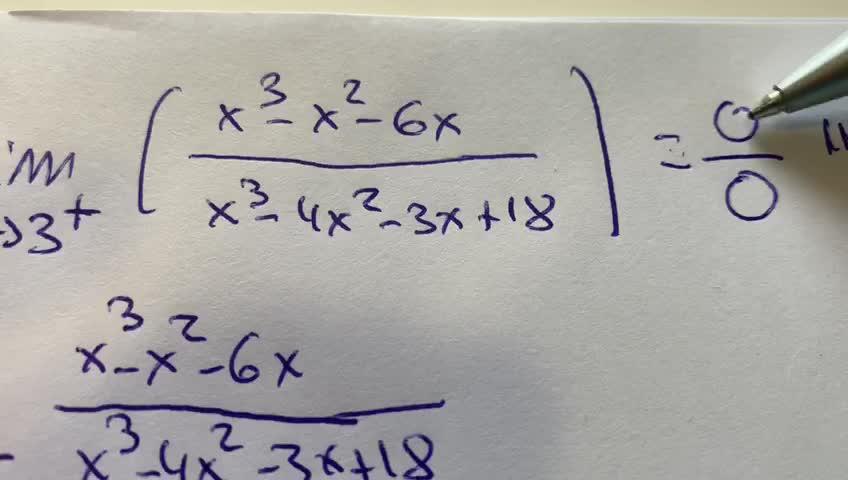 lim x→3⁺ ( (x³ - x² - 6x) / (x³ - 4x² - 3x + 18) ) = 0/0
(x³ - x² - 6x) / (x³ - 4x² - 3x + 18)